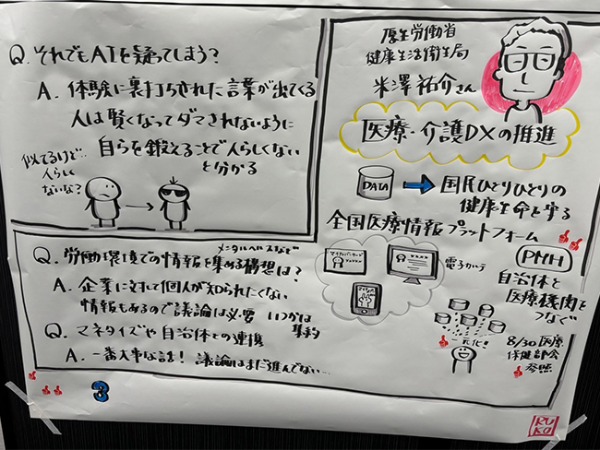 Q. それでもAIを疑ってしまう?
A. 体験に裏打ちされた言葉が出てくる
人は賢くなってダマされないように
自らを鍛えることで人らしくない
と分かる
似てるけど…
人らしく
ないな?
厚生労働省
健康生活衛生局
米澤祐介さん
医療・介護DXの推進
DATA
国民ひとりひとりの
健康生命を守る
全国医療情報プラットフォーム
電子カルテ
PMH
自治体と
医療機関を
つなぐ
一元化!
8/30医療
保健部会
参照
メンタルヘルスなど
Q. 労働環境での情報を集める構想は?
A. 企業に対して個人が知られたくない
情報もあるので議論は必要 いつかは
集約
Q. マネタイズや自治体との連携
A. 一番大事な話! 議論はまだ進んでない…
3
RUKO